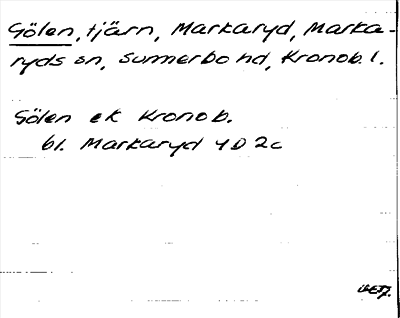 Gölen, tjärn, Markaryd, Marka-
ryds sn, Sunnerbo hd, Kronob. l.
Gölen ek Kronob.
bl. Markaryd 4D 2c